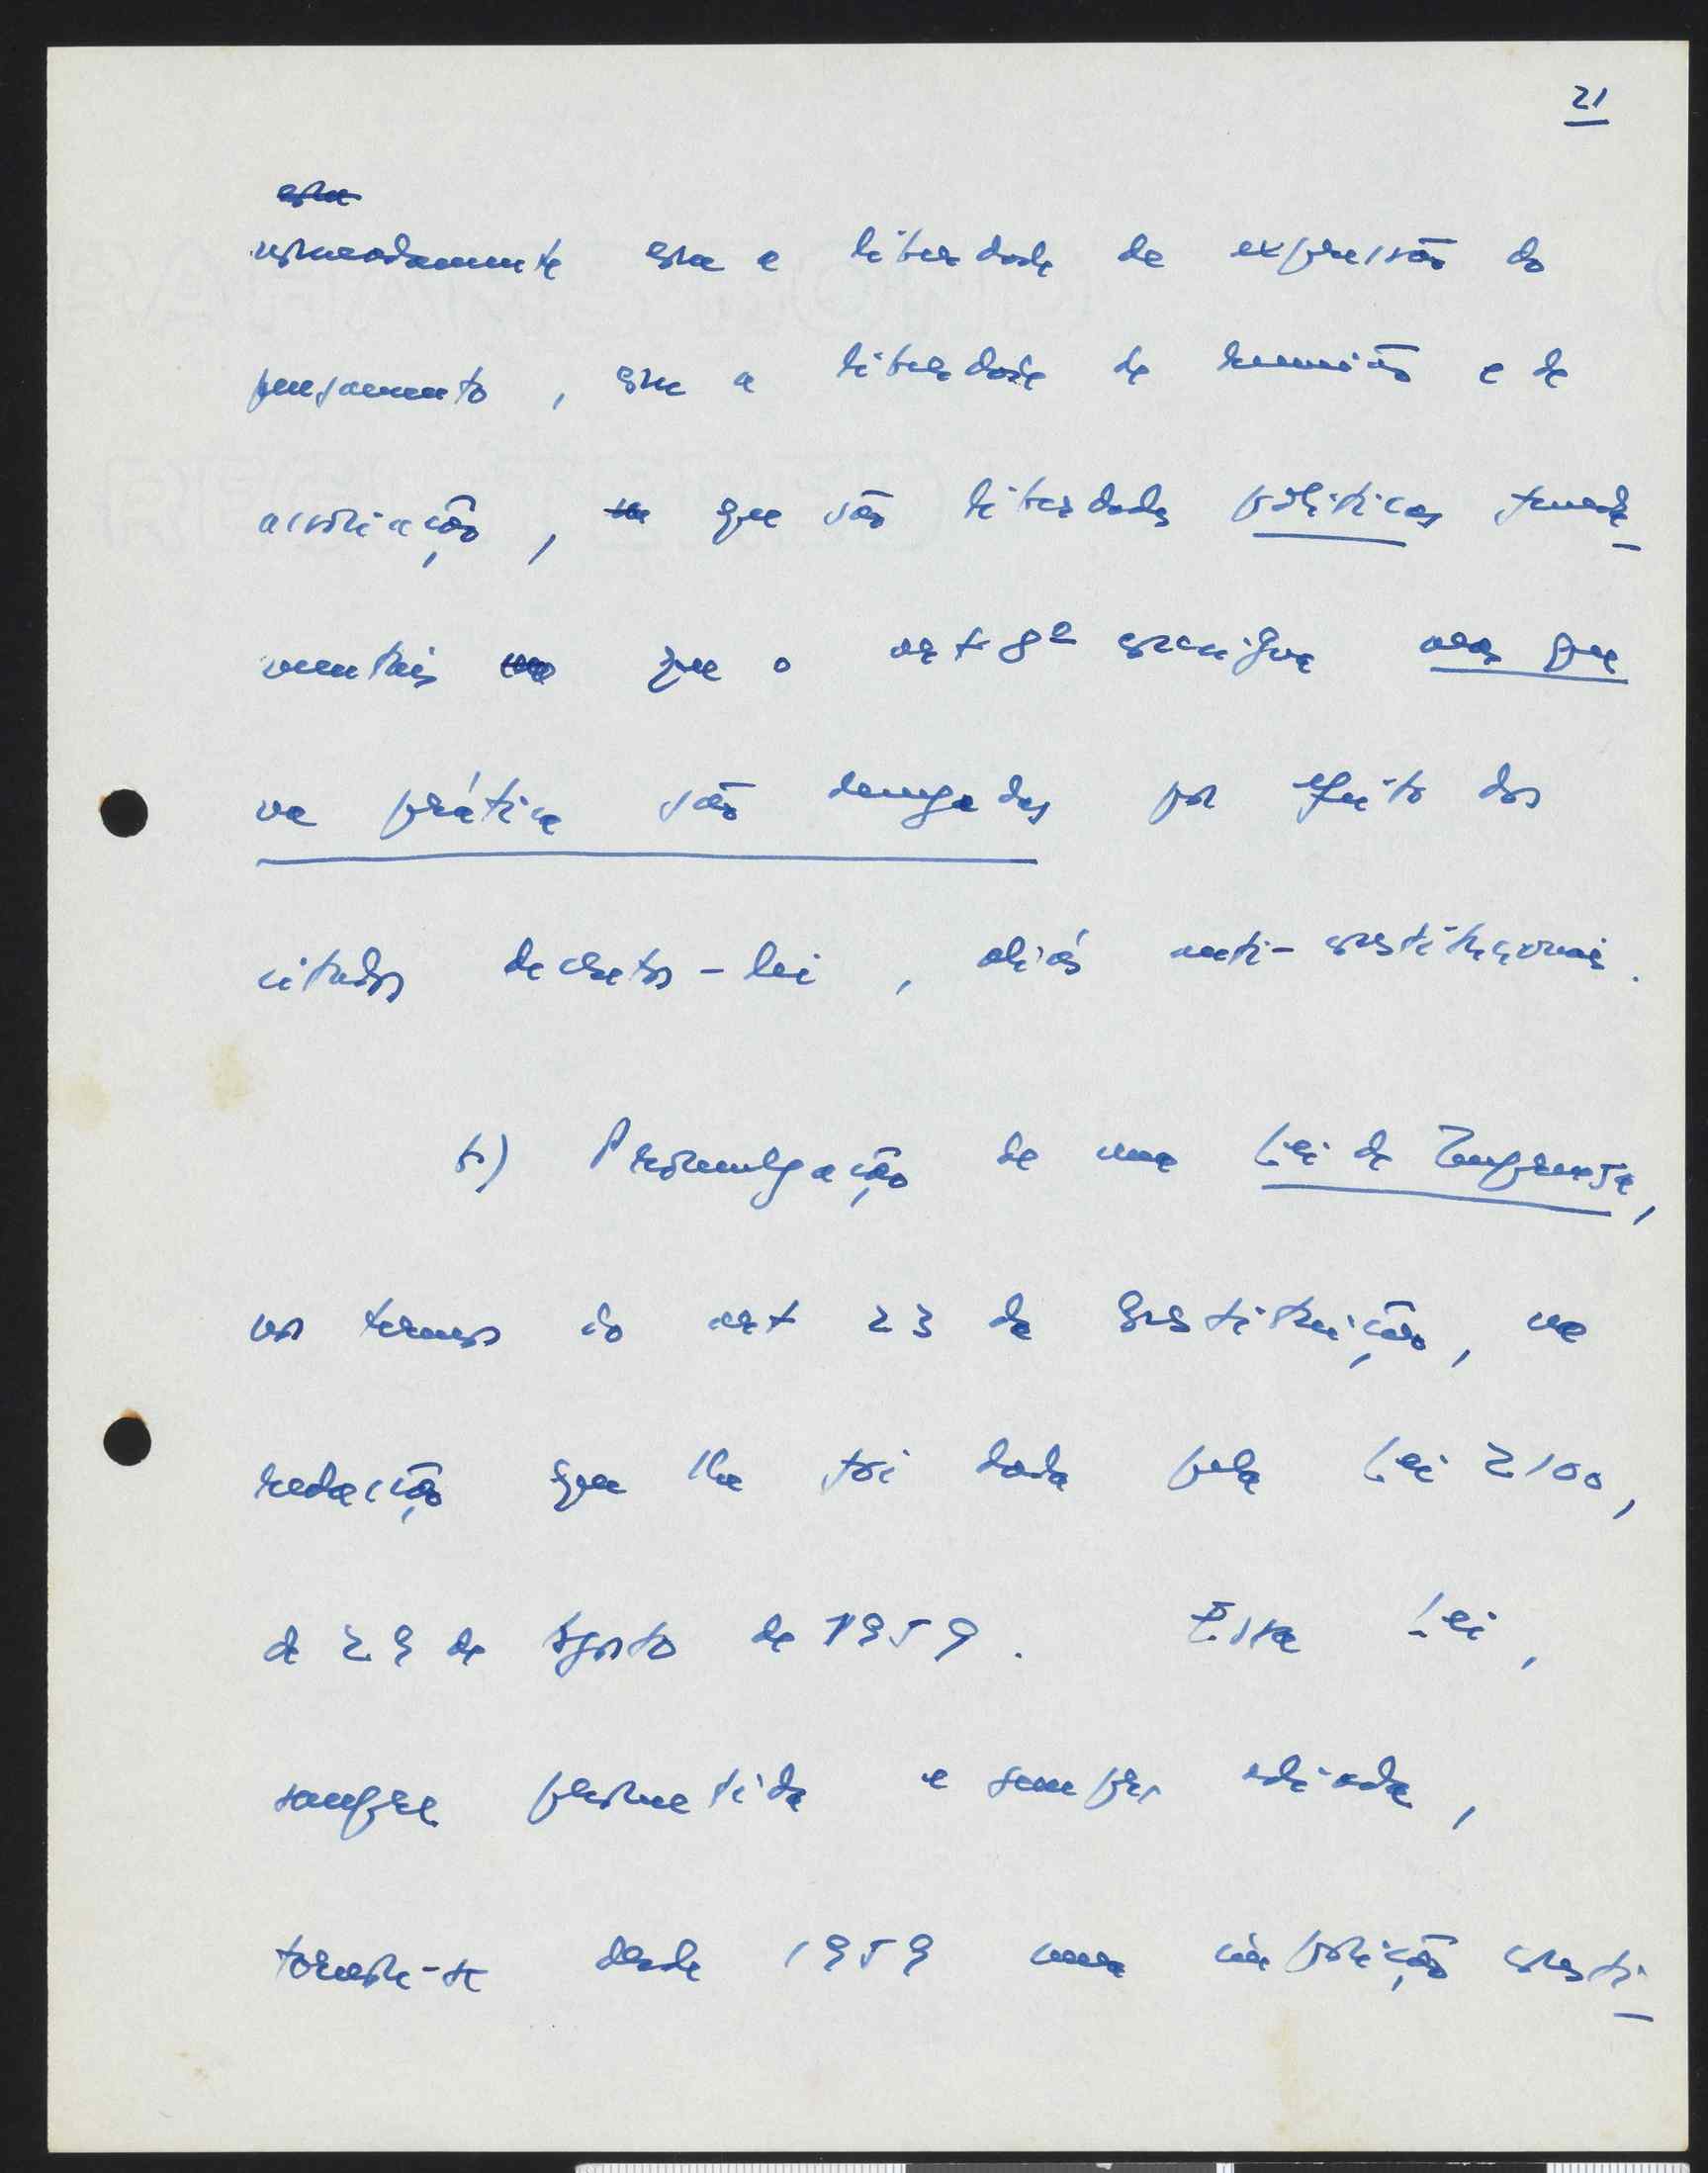 21
com
nomeadamente com a liberdade de expressão do
pensamento, com a liberdade de reunião e de
associação, que são liberdades políticas funda-
mentais que o art 8º consigna mas que
na prática são denegadas por efeito dos
citados decretos-lei, aliás anti-constitucionais.
b) Promulgação de uma Lei de Imprensa,
nos termos do art 23 da Constituição, na
redacção que lhe foi dada pela Lei 2100,
de 29 de Agosto de 1959. Essa Lei,
sempre prometida e sempre adiada,
tornou-se desde 1959 uma imposição consti-